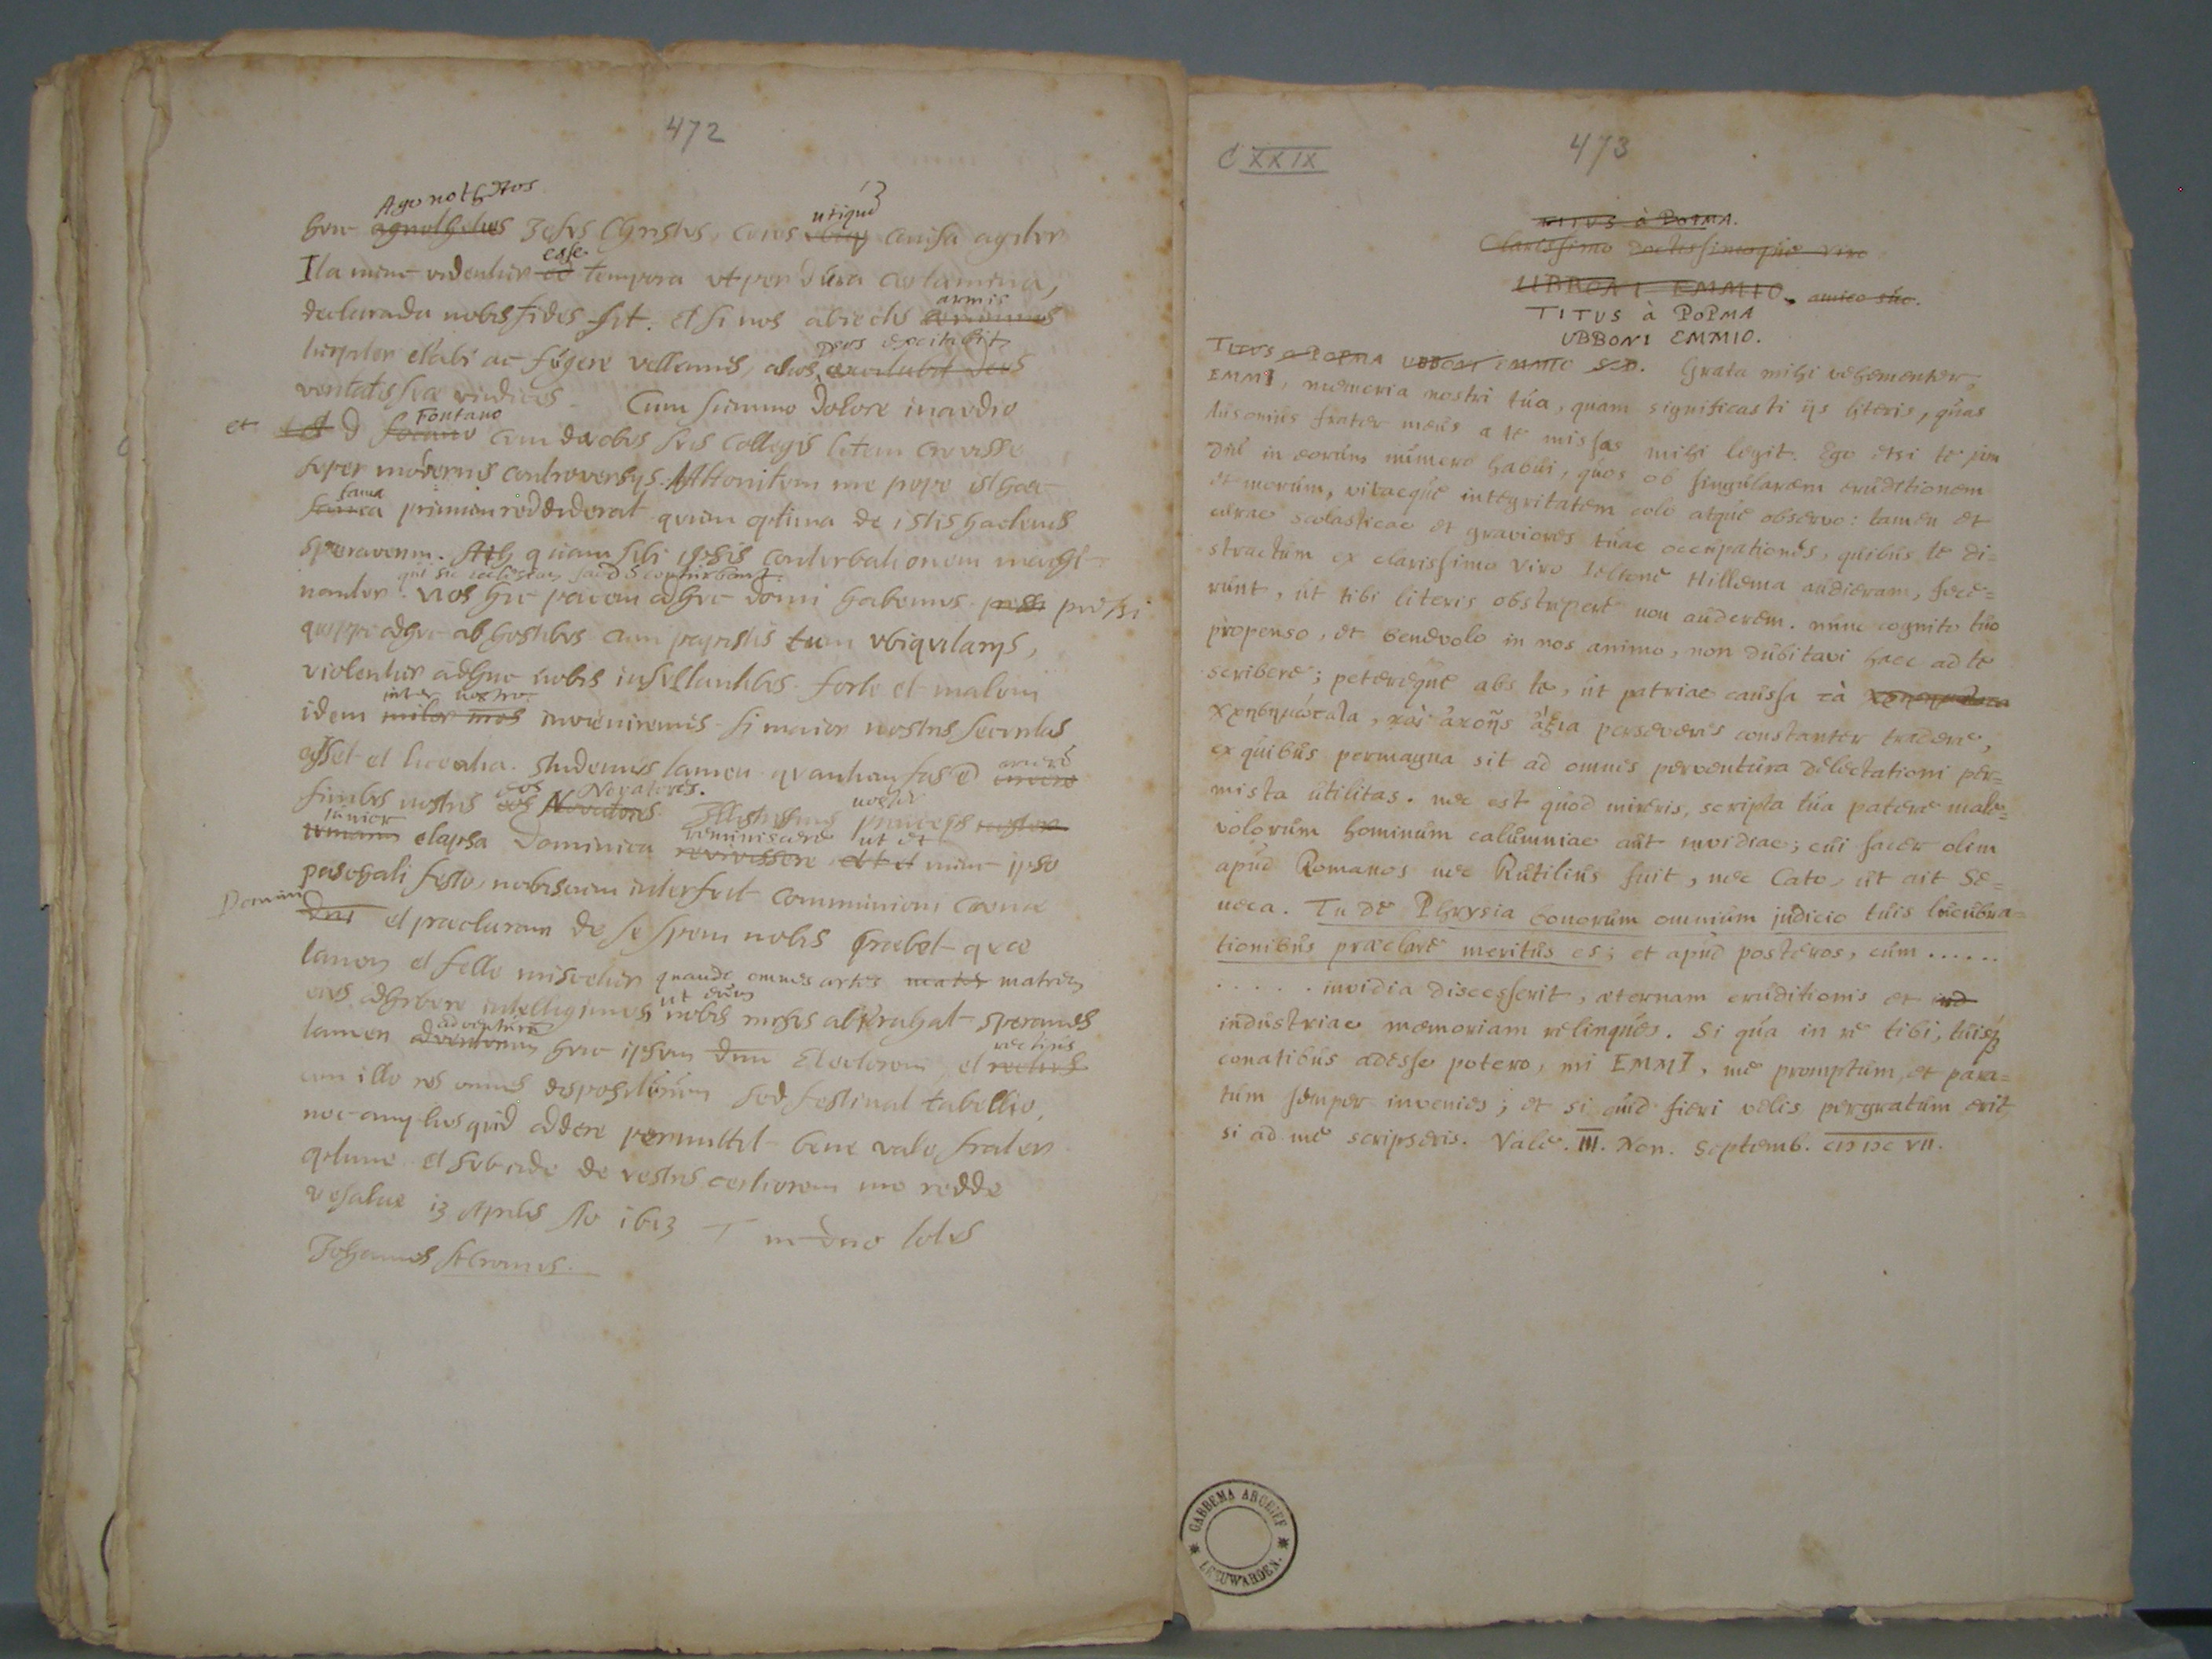 472
Agonothetos utique
huic agnothetes Jesus Christus, cuius causa agitur
esse
Ita nunc videntur tempora ut per dura certamina,
armis
declaranda nobis fides sit. et si nos abiectis
Deus excitabit
turpiter elabi ac fugere vellemus, alios excitabit deus
veritatis suae vindices. Cum summo dolore inaudio
Fontano
et D cum duobus suis collegis litem crevisse
super modernis controversiis. Attonitum me prope isthaec
fama
primum reddiderat quum optima de istis hactenus
speraverim. Ah quam sibi ipsis conturbationem machi-
qui sic ecclesiam conturbant.
nantur. Nos hic pacem adhuc domi habemus pressi
quippe adhuc ab hostibus cum papistis tum ubiquitariis,
violenter adhuc nobis insultantibus. forte et malum
inter nostros
idem inter nos inveniremus si maior nostris securitas
esset et licentia. studemus tamen quantum fas est arcere
eos Novatores.
finibus nostris eos Novatores. Illustrissimus princeps noster
iunior reminiscere ut et
elapsa Dominica et nunc ipso
paschali festo, nobiscum interfuit communioni coenae
Domini
Dni et praeclaram de se spem nobis praebet quae
tamen et felle miscetur quando omnes artes matrem
ut eum
eius adhibere intelligimus nobis rursus abstrahat speramus
adventurum
tamen huc ipsum dnm Electorem et rectius
cum illo res omnes dispositurum sed festinat tabellio,
nec amplius quid addere permittit bene vale frater
optime et subinde de vestris certiorem me redde
Vesaliae 13 Aprilis Ao 1613 T in dno totus
Johannes
CXXIX
473
TITUS à POPMA.
Clarissimo Doctissimoque viro
UBBONI EMMIO. amico suo.
TITUS à POPMA
UBBONI EMMIO.
TITUS à POPMA UBBONI EMMIO S.D. Grata mihi vehementer,
EMMI, memoria nostri tua, quam significasti iis literis, quas
Ausonius frater meus a te missas mihi legit. Ego etsi te jam
diu in eorum numero habui, quos ob singularem eruditionem
et morum, vitaeque integritatem colo atque observo: tamen et
curae scolasticae et graviores tuae occupationes, quibus te di-
stractum ex clarissimo viro Ieltone Hillema audieram, fece=
runt, ut tibi literis obstrepere non auderem. nunc cognito tuo
propenso, et benevolo in nos animo, non dubitavi haec ad te
scribere; petereque abs te, ut patriae caussa τὰ
χρησιμώτατα, καὶ ἀκοῆς ἄξια perseveres constanter tradere,
ex quibus permagna sit ad omnes perventura delectationi per=
mista utilitas. nec est quod mireris, scripta tua patere male=
volorum hominum calumniae aut invidiae; cui sacer olim
apud Romanos nec Rutilius fuit, nec Cato, ut ait Se=
neca. Tu de Phrysia bonorum omnium judicio tuis lucubra=
tionibus praeclare meritus es; et apud posteros, cum ......
..... invidia discesserit, aeternam eruditionis et ind
industriae memoriam relinques. Si qua in re tibi, tuisq;
conatibus adesse potero, mi EMMI, me promptum, et para=
tum semper invenies; et si quid fieri velis pergratum erit
si ad me scripseris. Vale. III. Non. Septemb. CIƆ IƆC VII.
GABBEMA ARCHIEF
* LEEUWARDEN. *